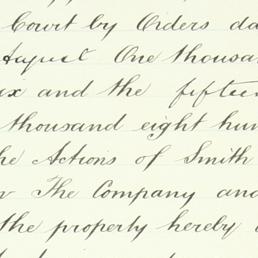 Court by Orders da
August One thousan
ix and the fifteen
thousand eight hun
he Actions of Smith
The Company and
the property hereby